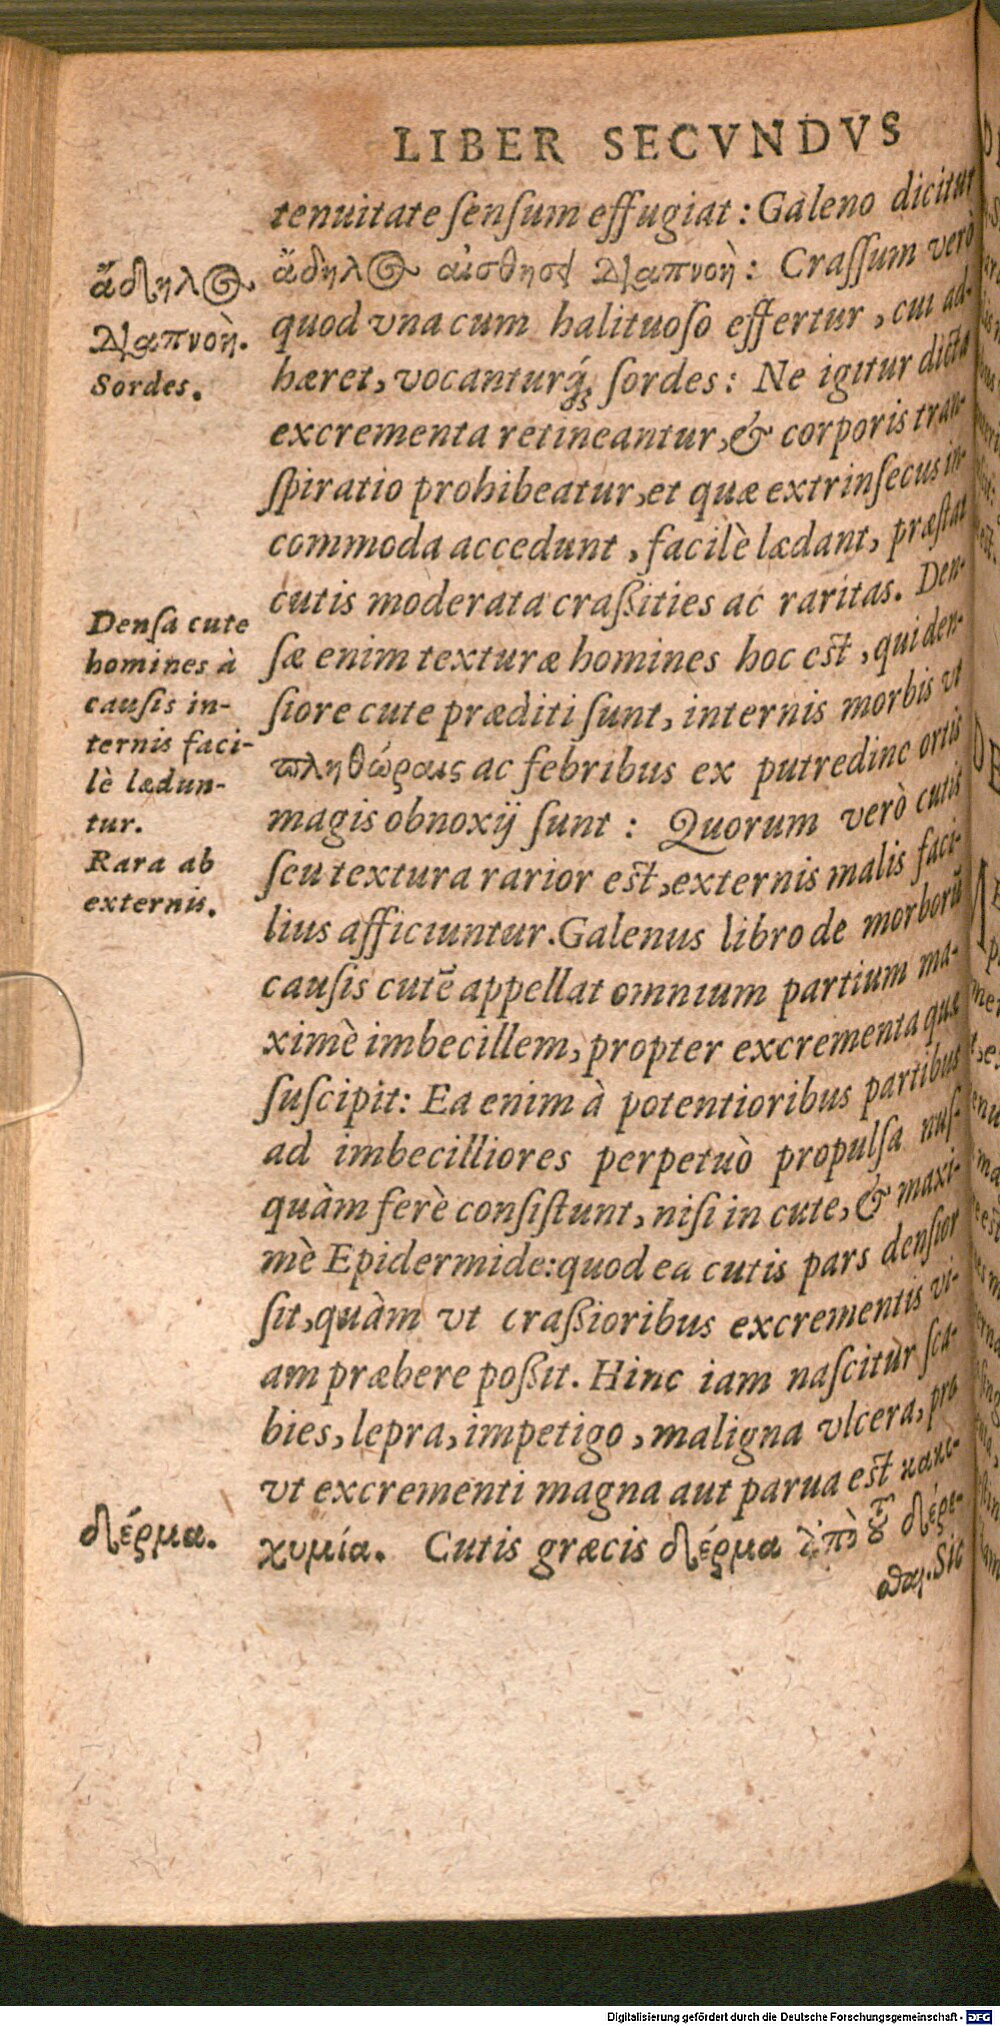 LIBER SECVNDVS
tenuitate ſenſum effugiat : Galeno dicitur
ἄδηλος αἰσθησι διαπνοὴ : Craſſum verò
quod vna cum halituoſo effertur , cui ad-
hæret, vocanturq́; ſordes : Ne igitur dicta
excrementa retineantur, & corporis tran-
ſpiratio prohibeatur, et quæ extrinſecus in-
commoda accedunt , facilè lædant, præſtat
cutis moderata craßities ac raritas. Den-
ſæ enim texturæ homines hoc est , qui den-
ſiore cute præditi ſunt, internis morbis vt
πληθώραις ac febribus ex putredine ortis
magis obnoxij ſunt : Quorum verò cutis
ſeu textura rarior est, externis malis faci-
lius afficiuntur. Galenus libro de morborũ
cauſis cutẽ appellat omnium partium ma-
ximè imbecillem, propter excrementa quæ
ſuſcipit: Ea enim à potentioribus partibus
ad imbecilliores perpetuò propulſa nuſ-
quàm ferè conſiſtunt, niſi in cute, & maxi-
mè Epidermide: quod ea cutis pars denſior
ſit, quàm vt craßioribus excrementis vi-
am præbere poßit. Hinc iam naſcitur ſca-
bies, lepra, impetigo , maligna vlcera, pro
vt excrementi magna aut parua est κακο-
χυμία. Cutis græcis δέρμα ἀπὸ τοῦ δέρε-
σθαι. Sic
ἄδηλος
διαπνοὴ.
Sordes.
Denſa cute
homines à
cauſis in-
ternis faci-
lè lædun-
tur.
Rara ab
externis.
δέρμα.
Digitalisierung gefördert durch die Deutsche Forschungsgemeinschaft - DFG